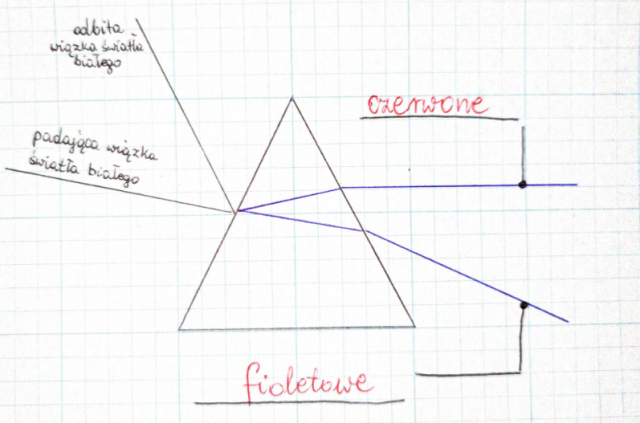 odbita
wiązka światła
białego
czerwone
padająca wiązka
światła białego
fioletowe